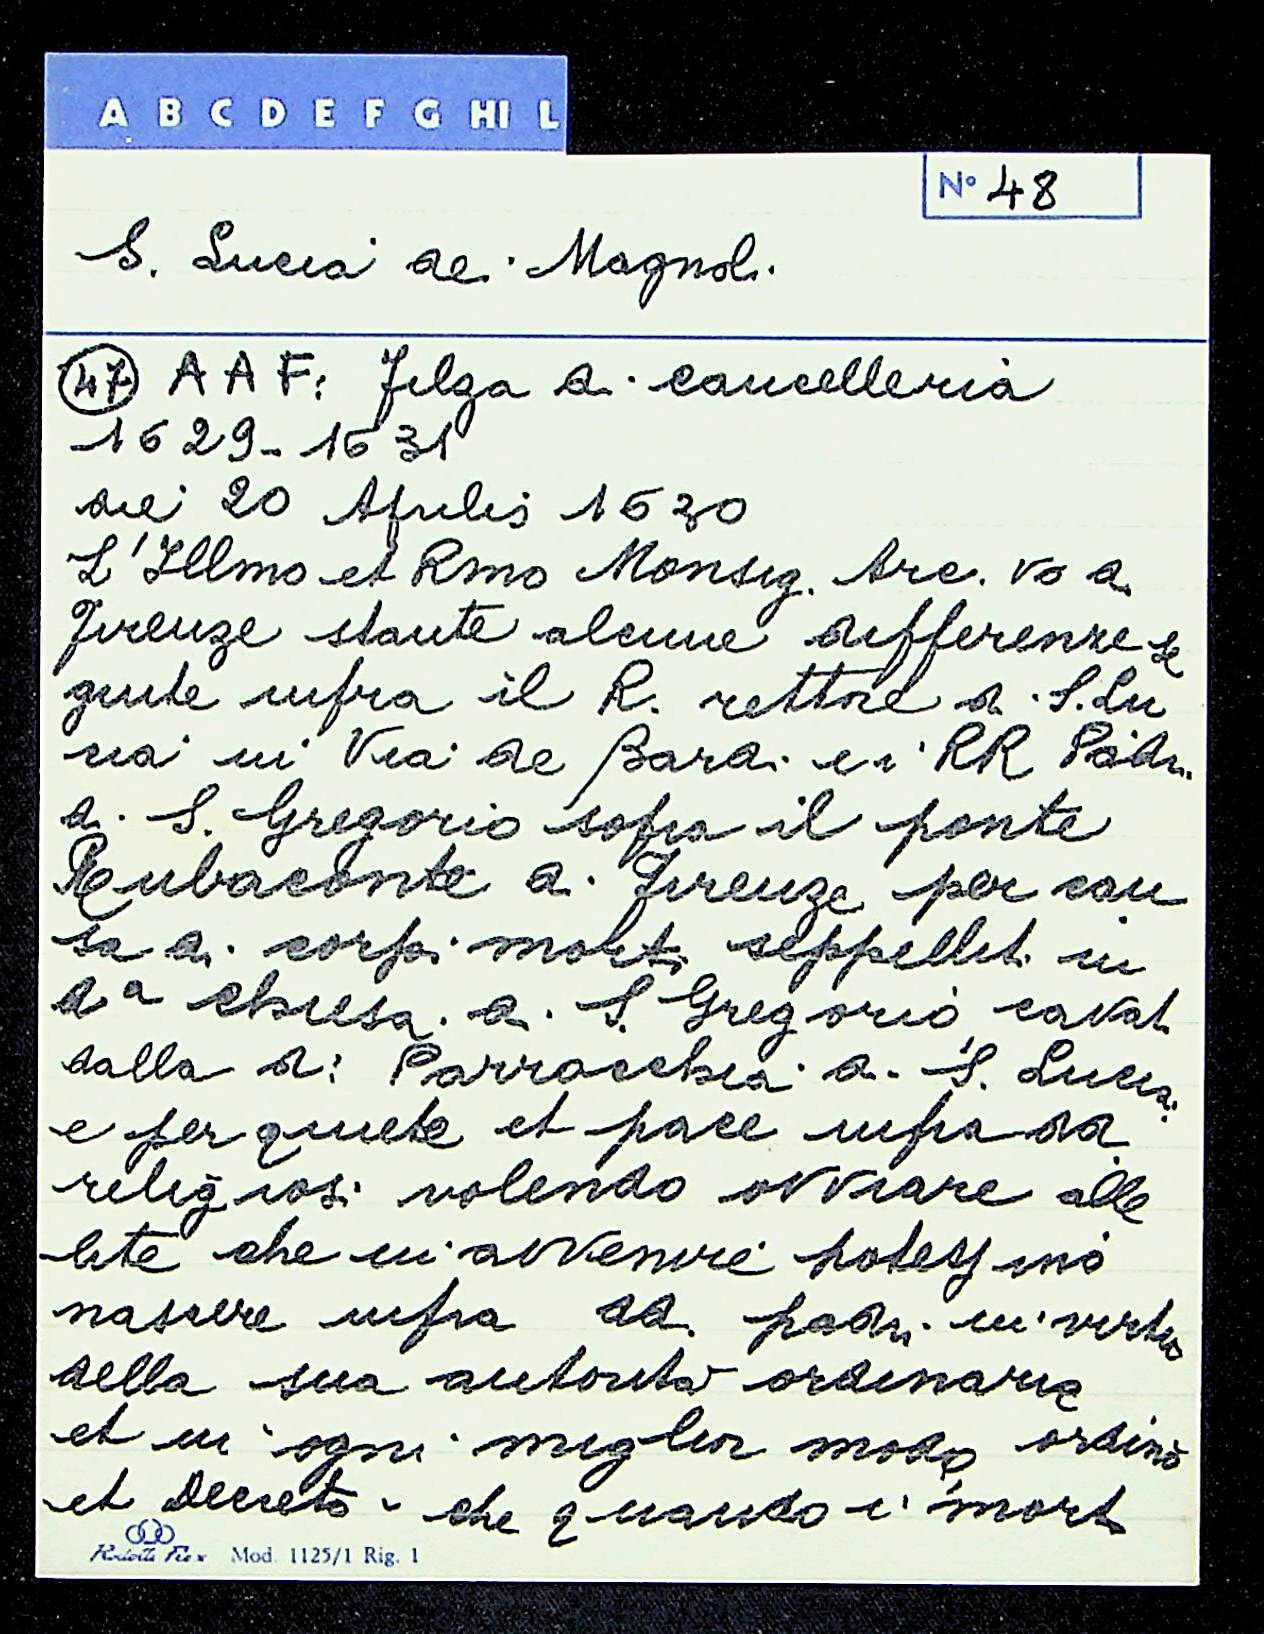 A B C D E F G HI L
N° 48
S. Lucia de' Magnoli
47 A A F: Filza di cancelleria
1629-1631
die 20 Aprilis 1630
L'Illmo et Rmo Monsig. Arc. vo di
Firenze stante alcune differenze se
guite infra il R. rettore di S. Lu
cia in Via de Bardi e i RR Padri
di S. Gregorio sopra il ponte
Rubaconte di Firenze per cau
sa di corpi morti seppelliti in
da chiesa di S. Gregorio cavati
dalla d: Parrocchia di S. Lucia:
e per quiete et pace infra dd
religiosi volendo ovviare alle
lite che in avvenire potessino
nascere infra dd. padri in virtù
della sua autorità ordinaria
et in ogni miglior modo ordinò
et Decretò - che quando i morti
Mod. 1125/1 Rig. 1